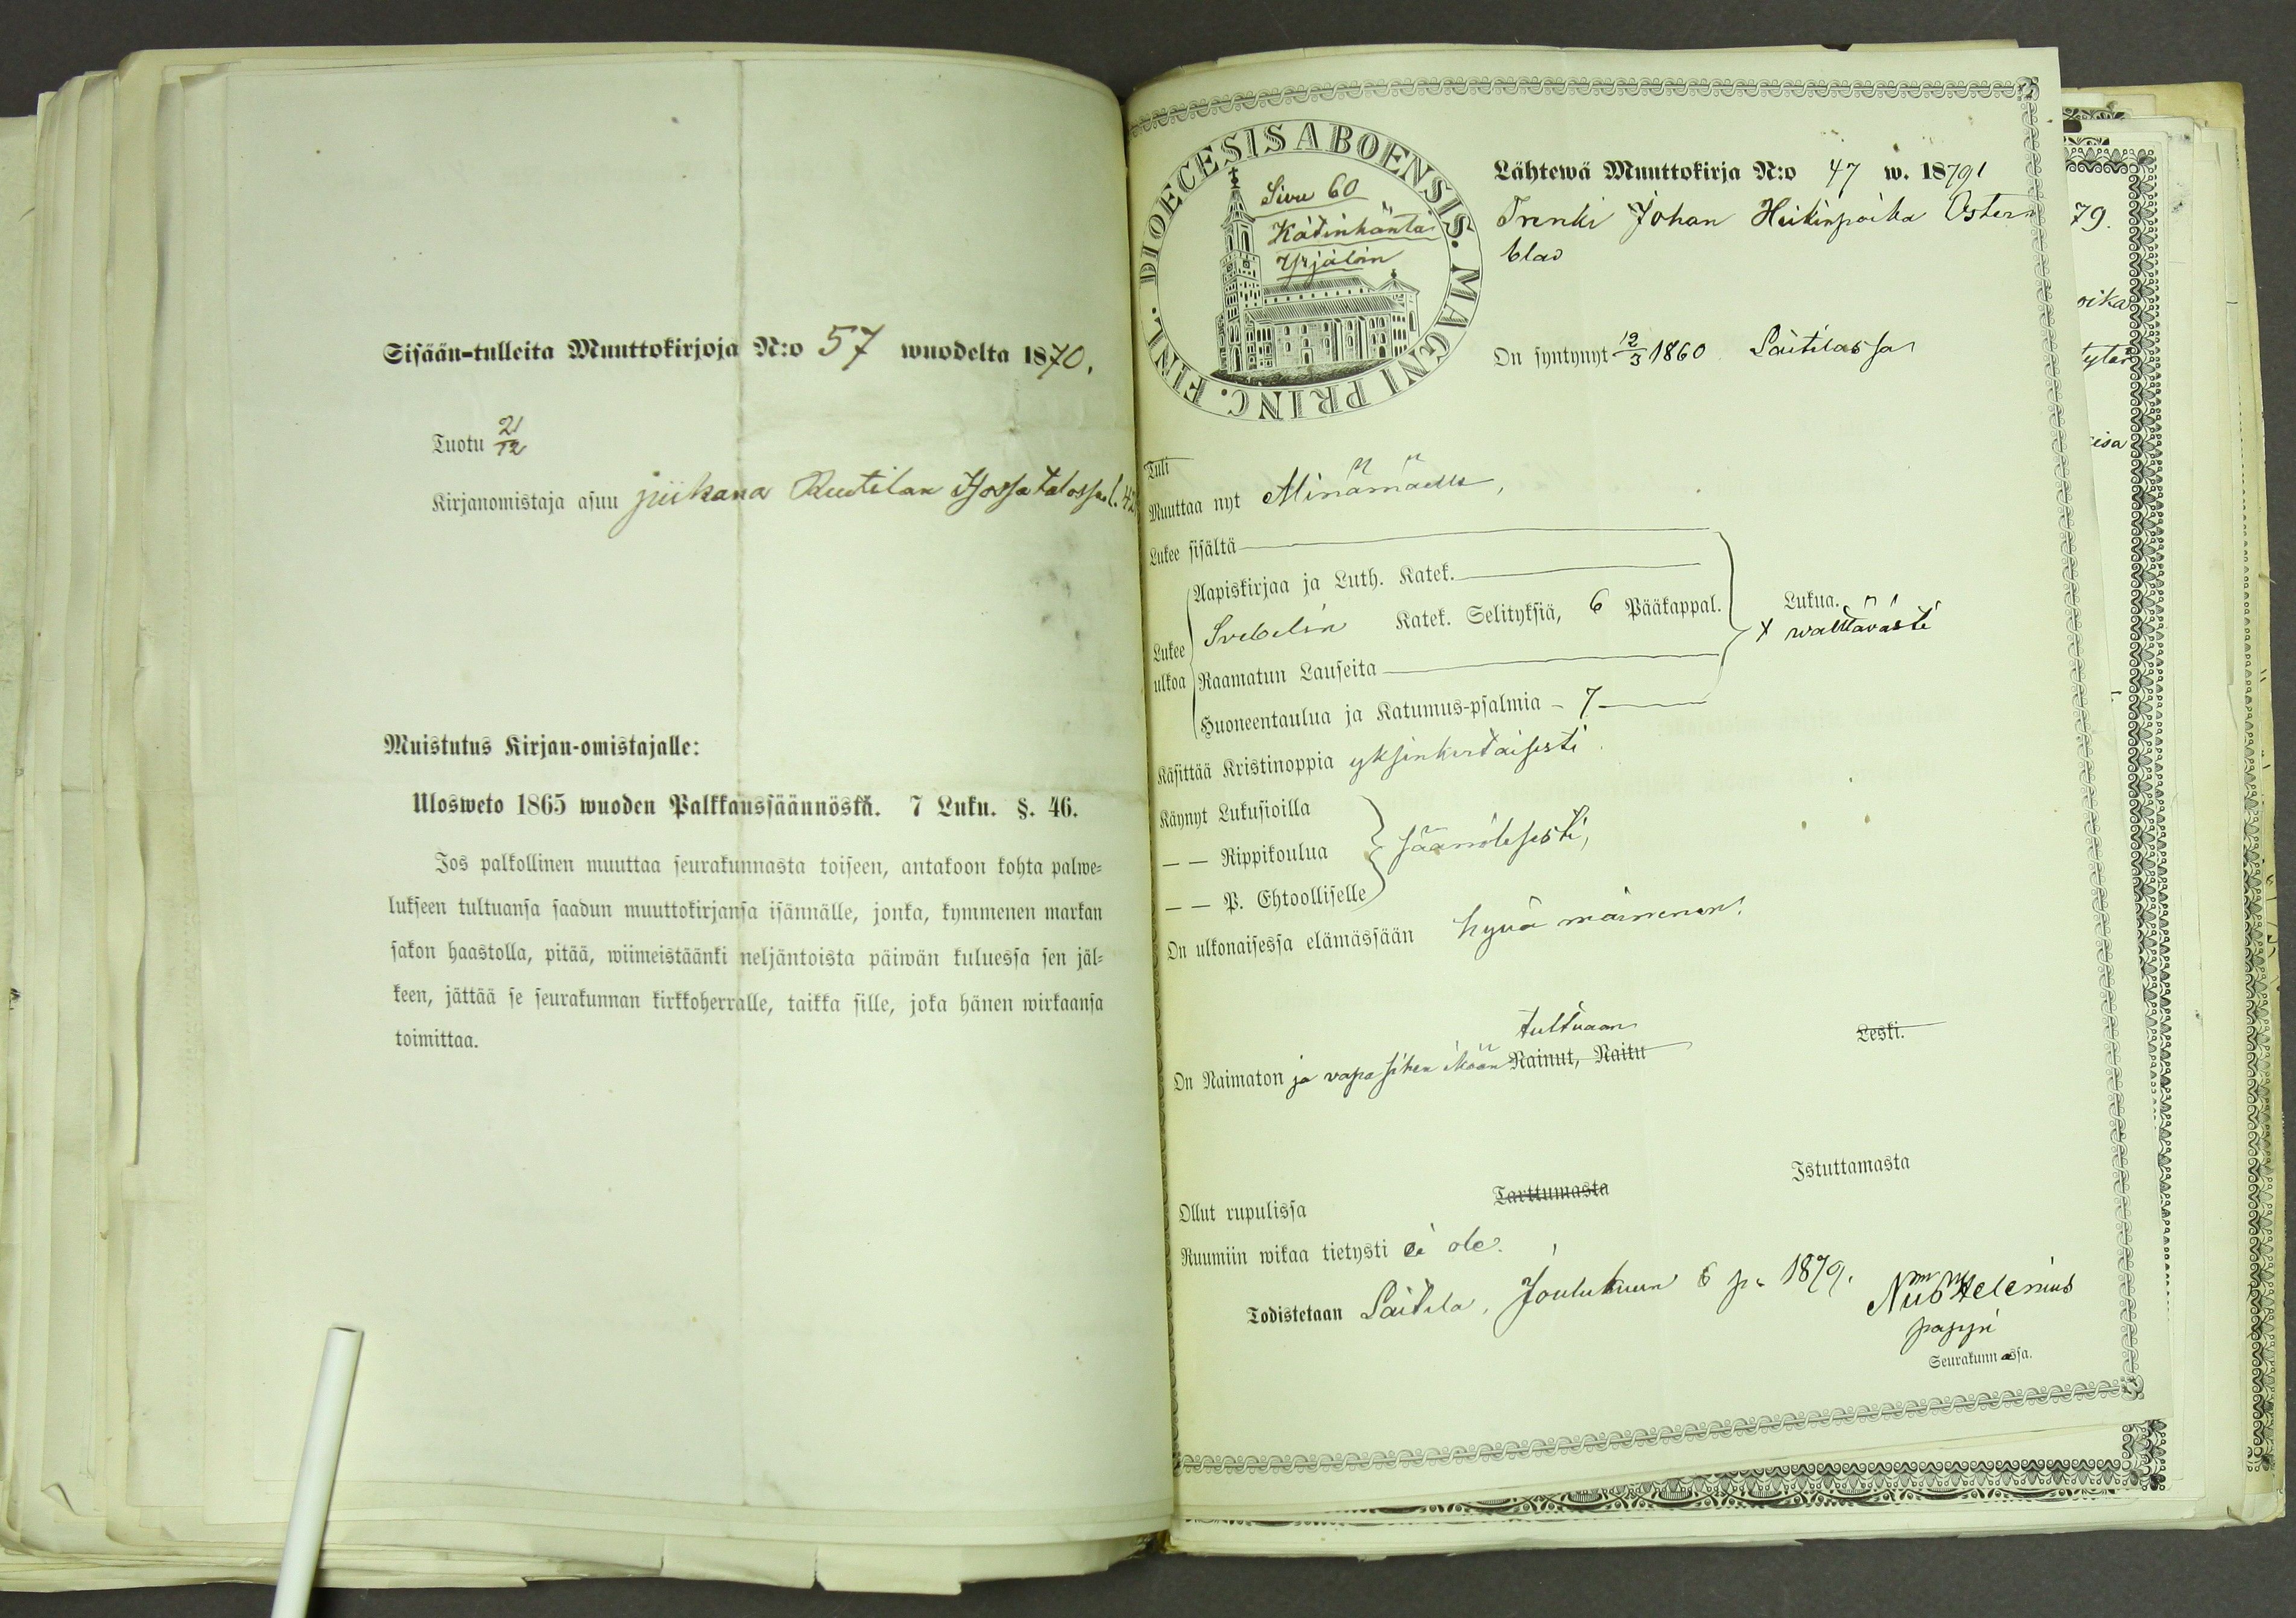 Sisään-tulleita Muuttokirjoja N:o 57 wuodelta 1870.
Tuotu 21/12
Kirjanomistaja asuu piikana Ruutilan talossa
Muistutus Kirjan-omistajalle:
Ulosweto 1865 wuoden Palkkaussäännöstä. 7 Luku. §. 46.
Jos palkollinen muuttaa seurakunnasta toiseen, antakoon kohta palwe=
lukseen tultuansa saadun muuttokirjansa isännälle, jonka, kymmenen markan
sakon haastolla, pitää, wiimeistäänki neljäntoista päiwän kuluessa sen jäl=
keen, jättää se seurakunnan kirkkoherralle, taikka sille, joka hänen wirkaansa
toimittaa.
DIOECESIS ABOENSIS. MAGNI PRINC. FINL.
Sivu 60
Kadinhänta
Yrjälöin
Lähtewä Muuttokirja N:o 47 w. 1879
Trenki Johan Heikinpoika Öster
blad
On syntynyt 12/3 1860 Laitilassa
Tuli
Muuttaa nyt Minämäelle,
Lukee sisältä
Aapiskirjaa ja Luth. Katek.
Lukee ulkoa
Svebelin Katek. Selityksiä, 6 Pääkappal.
Raamatun Lauseita
Huoneentaulua ja Katumus-psalmia - 7
Lukua.
x walttävästi
Käsittää Kristinoppia yksinkertaisesti.
Käynyt Lukusioilla
— — Rippikoulua
säänölisesti,
— — P. Ehtoolliselle
On ulkonaisessa elämässään hyvä maineinen.
tultuaan
On Naimaton ja vapa siihen ikään Nainut, Naitu Leski.
Ollut rupulissa Tarttumasta Istuttamasta
Ruumiin wikaa tietysti ei ole.
Todistetaan Laitila, Joulukuun 6 p. 1879.
Helenius
pappi
Seurakunnassa.
79.
oika
tytär